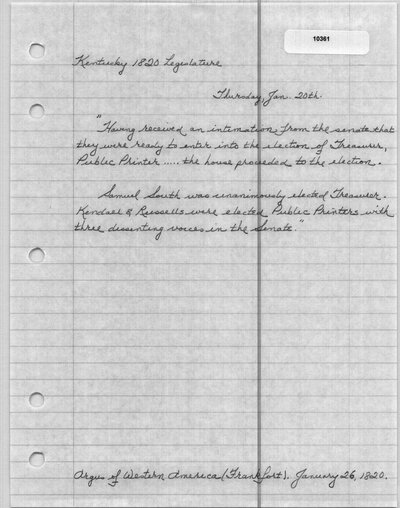 10361
Kentucky 1820 Legislature
Thursday, Jan. 20th.
"Having received an intimation from the senate that
they were ready to enter into the election of Treasurer,
Public Printer ..... the house proceeded to the election.
Samuel South was unanimously elected Treasurer.
Kendall & Russells were elected Public Printers with
three dissenting voices in the Senate."
Argus of Western America (Frankfort). January 26, 1820.